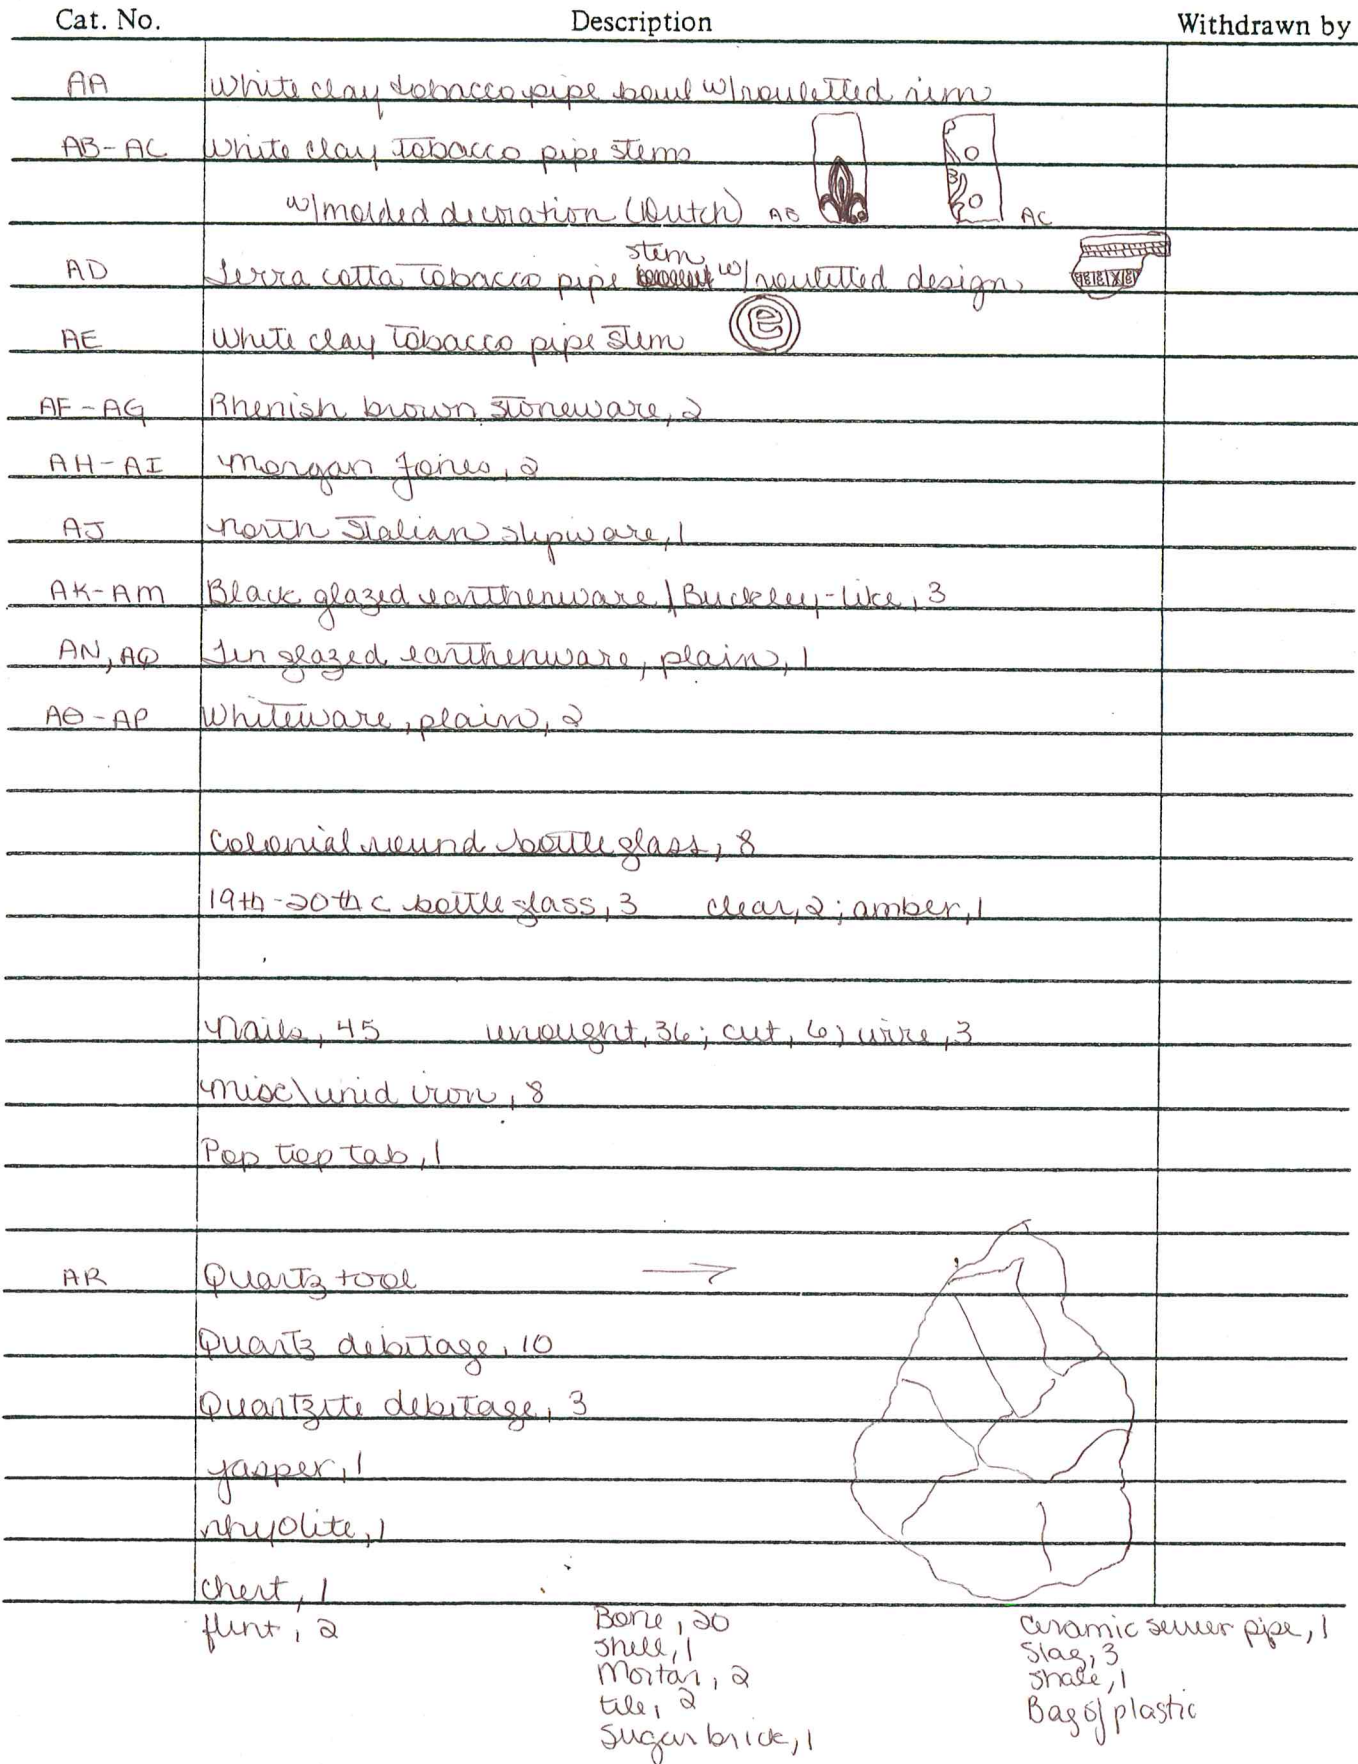 Cat. No. Description Withdrawn by
AA White clay tobacco pipe bowl w/rouletted rim
AB-AC White clay tobacco pipe stems
w/molded decoration (Dutch) AB AC
stem
AD Terra cotta tobacco pipe w/rouletted design
AE White clay tobacco pipe stem e
AF-AG Rhenish brown stoneware, 2
AH-AI Morgan Jones, 2
AJ North Italian slipware, 1
AK-AM Black glazed earthenware/Buckley-like, 3
AN, AQ Tin glazed earthenware, plain, 1
AO-AP Whiteware, plain, 2
Colonial round bottle glass, 8
19th-20th c bottle glass, 3 clear, 2; amber, 1
Nails, 45 wrought, 36; cut, 6; wire, 3
Misc\unid iron, 8
Pop top tab, 1
AR Quartz tool →
Quartz debitage, 10
Quartzite debitage, 3
jasper, 1
rhyolite, 1
chert, 1
flint, 2 Bone, 20 Ceramic sewer pipe, 1
shell, 1 Slag, 3
Mortar, 2 shale, 1
tile, 2 Bag of plastic
Sugar brick, 1